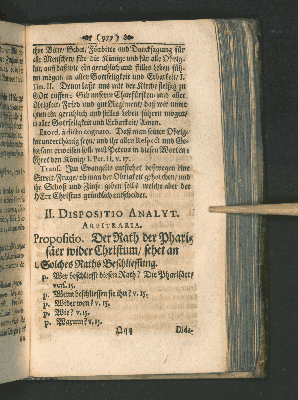 (977)
ihre Bitte, Gebet, Fürbitte und Dancksagung für
alle Menschen, für die Könige und für alle Obrig-
keit, auff daß wir ein geruhlich und stilles Leben füh-
ren mögen in aller Gottseligkeit und Erbarkeit, I.
Tim. II. Denn laßt uns wie der Kleine fleißig zu
Gott ruffen: Gib unserm
Obrigkeit Fried und gut Regiment, daß wir unter
ihnen ein geruhlich und stilles Leben führen mögen
in aller Gottseligkeit und Erbarkeit Amen.
Exord. à dicto cognato. Daß man seiner Obrig-
keit unterthänig seyn, und ihr allen Respect und Ge-
horsam erweisen soll, will Petrus in diesen Worten:
Ehret den König I. Pet. II, v. 17.
Transf. Im Evangelio entstehet deswegen eine
Streit-Frage, ob man der Obrigkeit gehorchen, und
ihr Schoß und Zinse geben soll, welche aber der
HErr Christus gründlich entscheidet.
II. DISPOSITIO ANALYT.
ARBITRARIA.
Propositio. Der Rath der Phari-
säer wider Christum, sehet an
I. Solches Raths Beschliessung.
p. Wer beschliesst diesen Rath? Die Phariseer,
vers. 15.
p. Wenn beschliessen sie ihn? v. 15.
p. Wider wen? v. 15.
p. Wie? v. 15.
p. Warum? v. 15.
Qqq